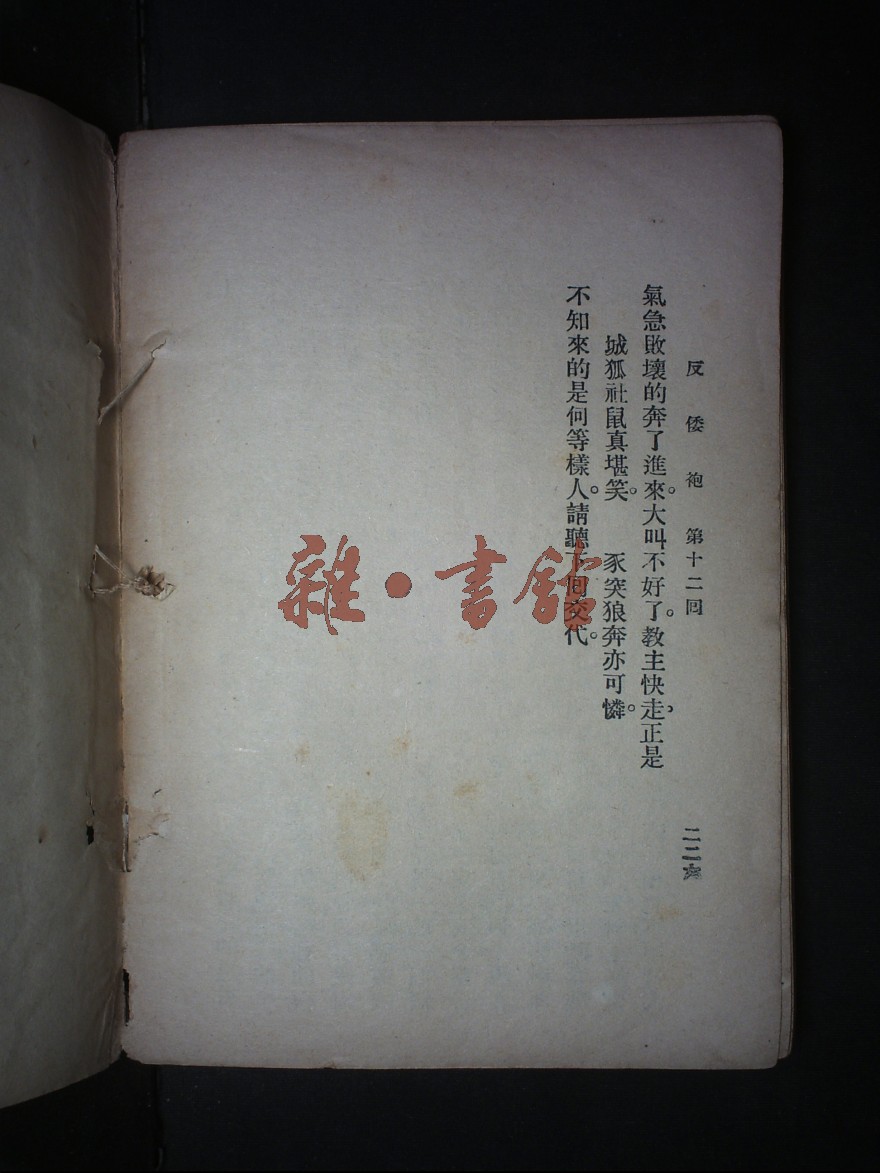 反倭袍 第十二回
二二六
氣急敗壞的奔了進來。大叫不好了。教主快走、正是
城狐社鼠真堪笑。 豕突狼奔亦可憐。
不知來的是何等樣人。請聽下回交代。
雜·書館